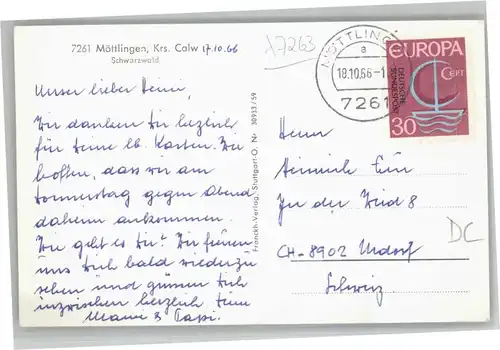 7261 Möttlingen, Krs. Calw 17.10.66
Schwarzwald
A7263
Unser lieber Heini,
Wir danken Dir herzlich
für Deine lb. Karten. Wir
hoffen, dass wir am
Donnerstag gegen Abend
daheim ankommen.
Wie geht es Dir? Wir freuen
uns Dich bald wiederzu
sehen und grüssen Dich
inzwischen herzlich Deine
Mami & Papi.
Franckh-Verlag, Stuttgart-O. Nr 30933/59
MÖTTLINGEN
a
18.10.66-1
7261
EUROPA
CEPT
DEUTSCHE
BUNDESPOST
30
Herrn
Heinrich
In der Weid 8
CH-8902 Urdorf
Schweiz
DC